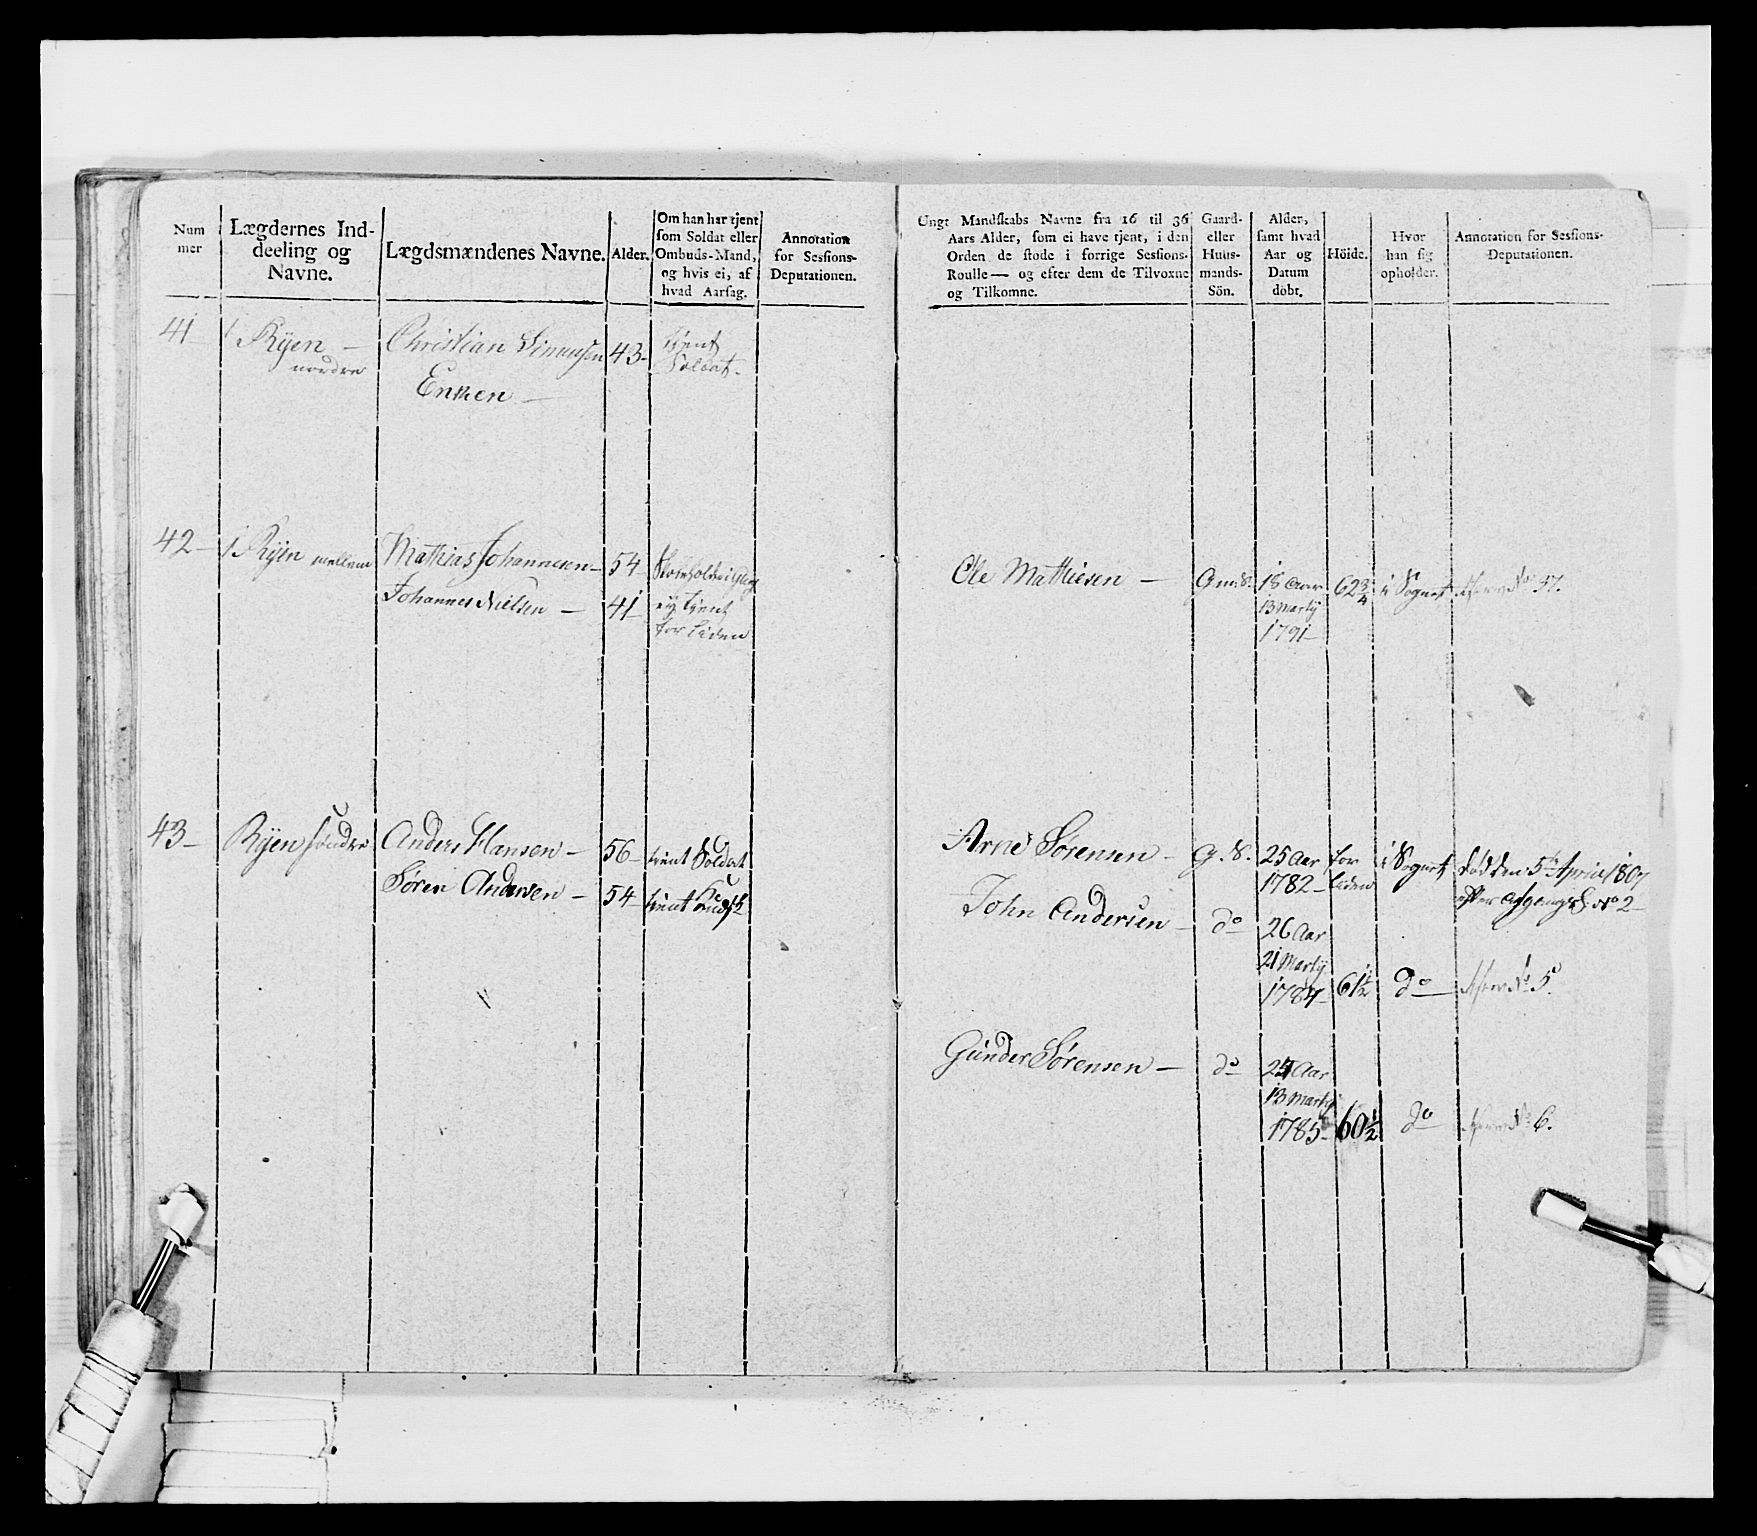 Num
mer
Lægdernes Ind-
deeling og
Navne.
Lægdsmændenes Navne.
Alder.
Om han har tjent
som Soldat eller
Ombuds-Mand,
og hvis ei, af
hvad Aarsag.
Annotation
for Sessions-
Deputationen.
Ungt Mandskabs Navne fra 16 til 36
Aars Alder, som ei have tjent, i den
Orden de stode i forrige Sessions-
Roulle — og efter dem de Tilvoxne
og Tilkomne.
Gaard-
eller
Huus-
mands-
Sön.
Alder,
samt hvad
Aar og
Datum
döbt.
Höide.
Hvor
han sig
opholder.
Annotation for Sessions-
Deputationen.
41
1 Ryen —
nordre
Christian Simensen
Enken —
43-
tient
Soldat.
42-
1 Ryen mellem
Mathias Johannesen-
54
Johannes Nielsen —
41
ey tient
for liden
Ole Mathiesen —
18 Aar
13 Martÿ
1791-
62¾
i Sognet
No 37.
43-
Ryen søndre
Anders Hansen -
56-
tient Soldat
Søren Andersen -
54
tient
Arne Sørensen -
G. S.
25 Aar
1782-
for
liden
i Sognet
død den 5te April 1807
No 2-
John Andersen -
do
26 Aar
21 Martÿ
1784-
61½
do
No 5.
Gunder Sørensen —
do
24 Aar
13 Martÿ
1785-
60½
do
No 6.